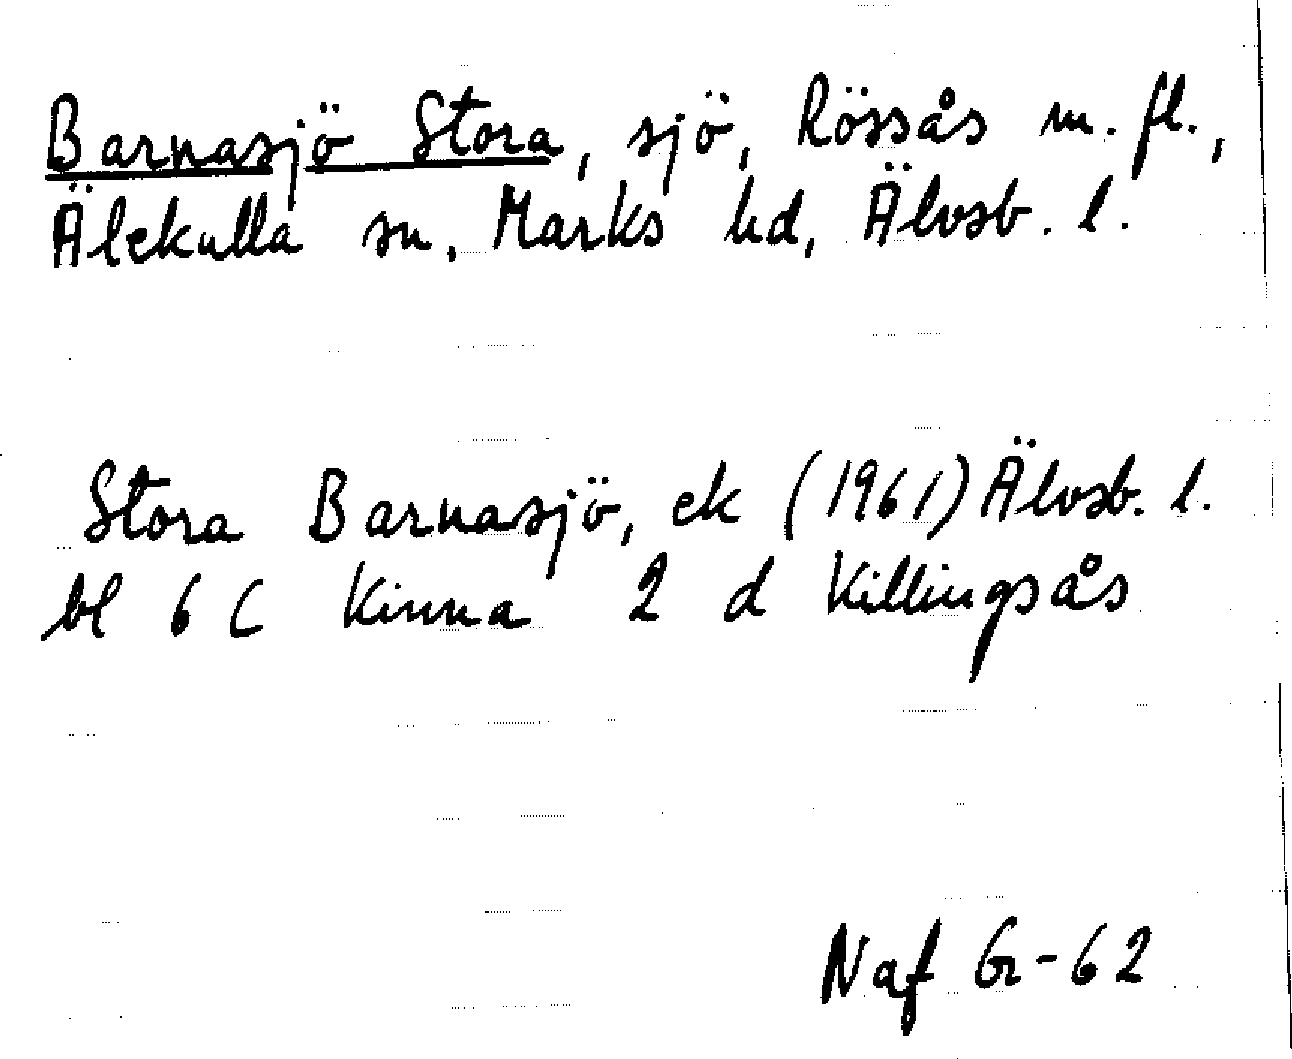 Barnasjö Stora, sjö, Rössås m. fl.,
Älekulla sn, Marks hd, Älvsb. l.
Stora Barnasjö, ek (1961) Älvsb. l.
bl 6 C Kinna 2 d Killingsås
Naf Gr-62